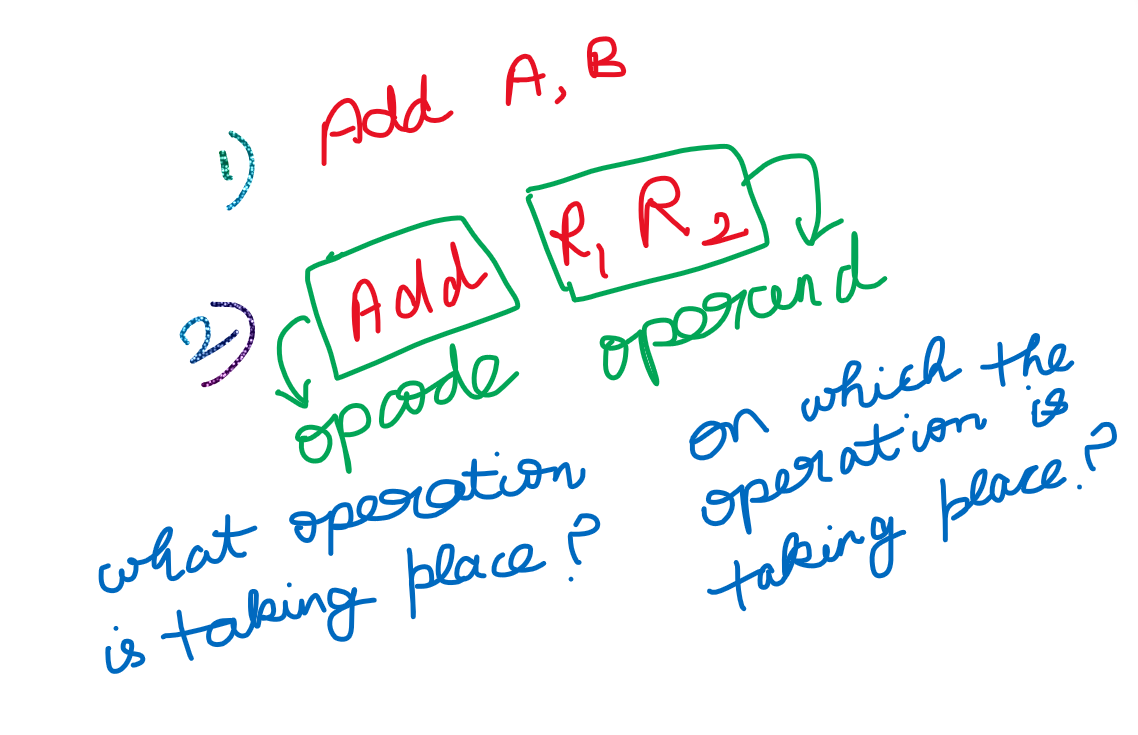 1) Add A, B
2) Add R1 R2
opcode operand
what operation
is taking place?
on which the
operation is
taking place?